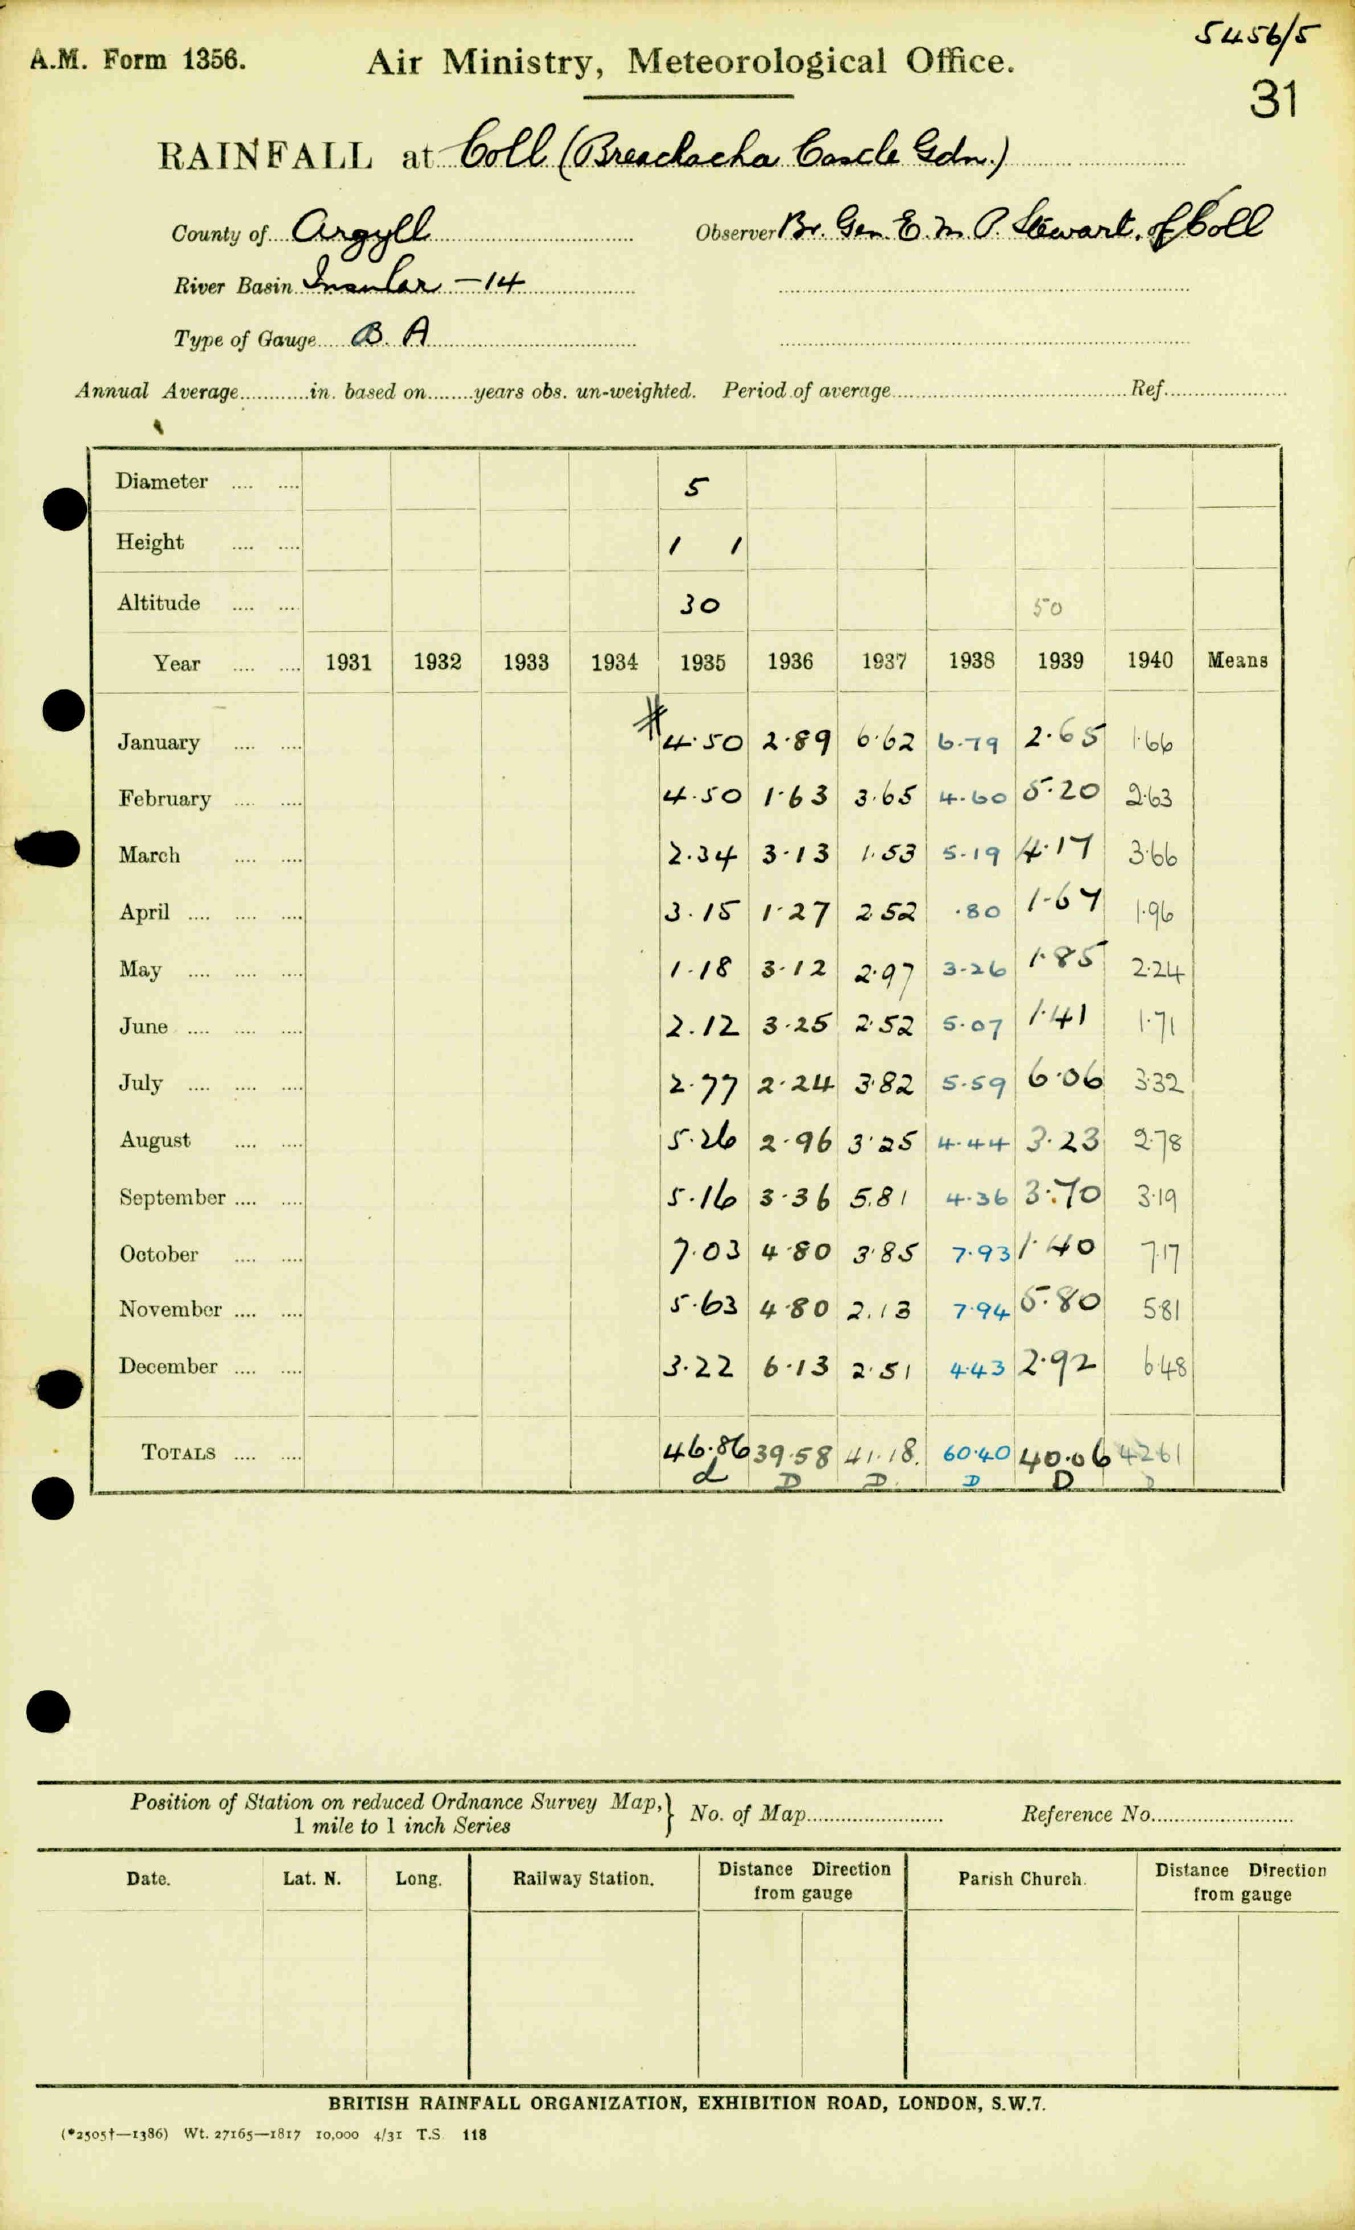 5456/5
A.M. Form 1356. Air Ministry, Meteorological Office.
31
RAINFALL at Coll (Breachacha Castle Gdn.)
County of Argyll Observer Br. Gen. E. M. P. Stewart. of Coll
River Basin Insular - 14
Type of Gauge B. A
Annual Average............in. based on........years obs. un-weighted. Period of average.................... Ref....................
Diameter .... .... 5
Height .... .... 1 1
Altitude .... .... 30 50
Year .... .... 1931 1932 1933 1934 1935 1936 1937 1938 1939 1940 Means
January .... .... # 4.50 2.89 6.62 6.79 2.65 1.66
February .... .... 4.50 1.63 3.65 4.60 5.20 2.63
March .... .... 2.34 3.13 1.53 5.19 4.17 3.66
April .... .... .... 3.15 1.27 2.52 .80 1.67 1.96
May .... .... .... 1.18 3.12 2.97 3.26 1.85 2.24
June .... .... .... 2.12 3.25 2.52 5.07 1.41 1.71
July .... .... .... 2.77 2.24 3.82 5.59 6.06 3.32
August .... .... 5.26 2.96 3.25 4.44 3.23 2.78
September .... .... 5.16 3.36 5.81 4.36 3.70 3.19
October .... .... 7.03 4.80 3.85 7.93 1.40 7.17
November .... .... 5.63 4.80 2.13 7.94 5.80 5.81
December .... .... 3.22 6.13 2.51 4.43 2.92 6.48
TOTALS .... .... 46.86 39.58 41.18. 60.40 40.06 42.61
d D D. D D D
Position of Station on reduced Ordnance Survey Map,} No. of Map........................ Reference No.........................
1 mile to 1 inch Series
Date. Lat. N. Long. Railway Station. Distance Direction Parish Church. Distance Direction
from gauge from gauge
BRITISH RAINFALL ORGANIZATION, EXHIBITION ROAD, LONDON, S.W.7.
(*2505†—1386) Wt. 27165—1817 10,000 4/31 T.S. 118